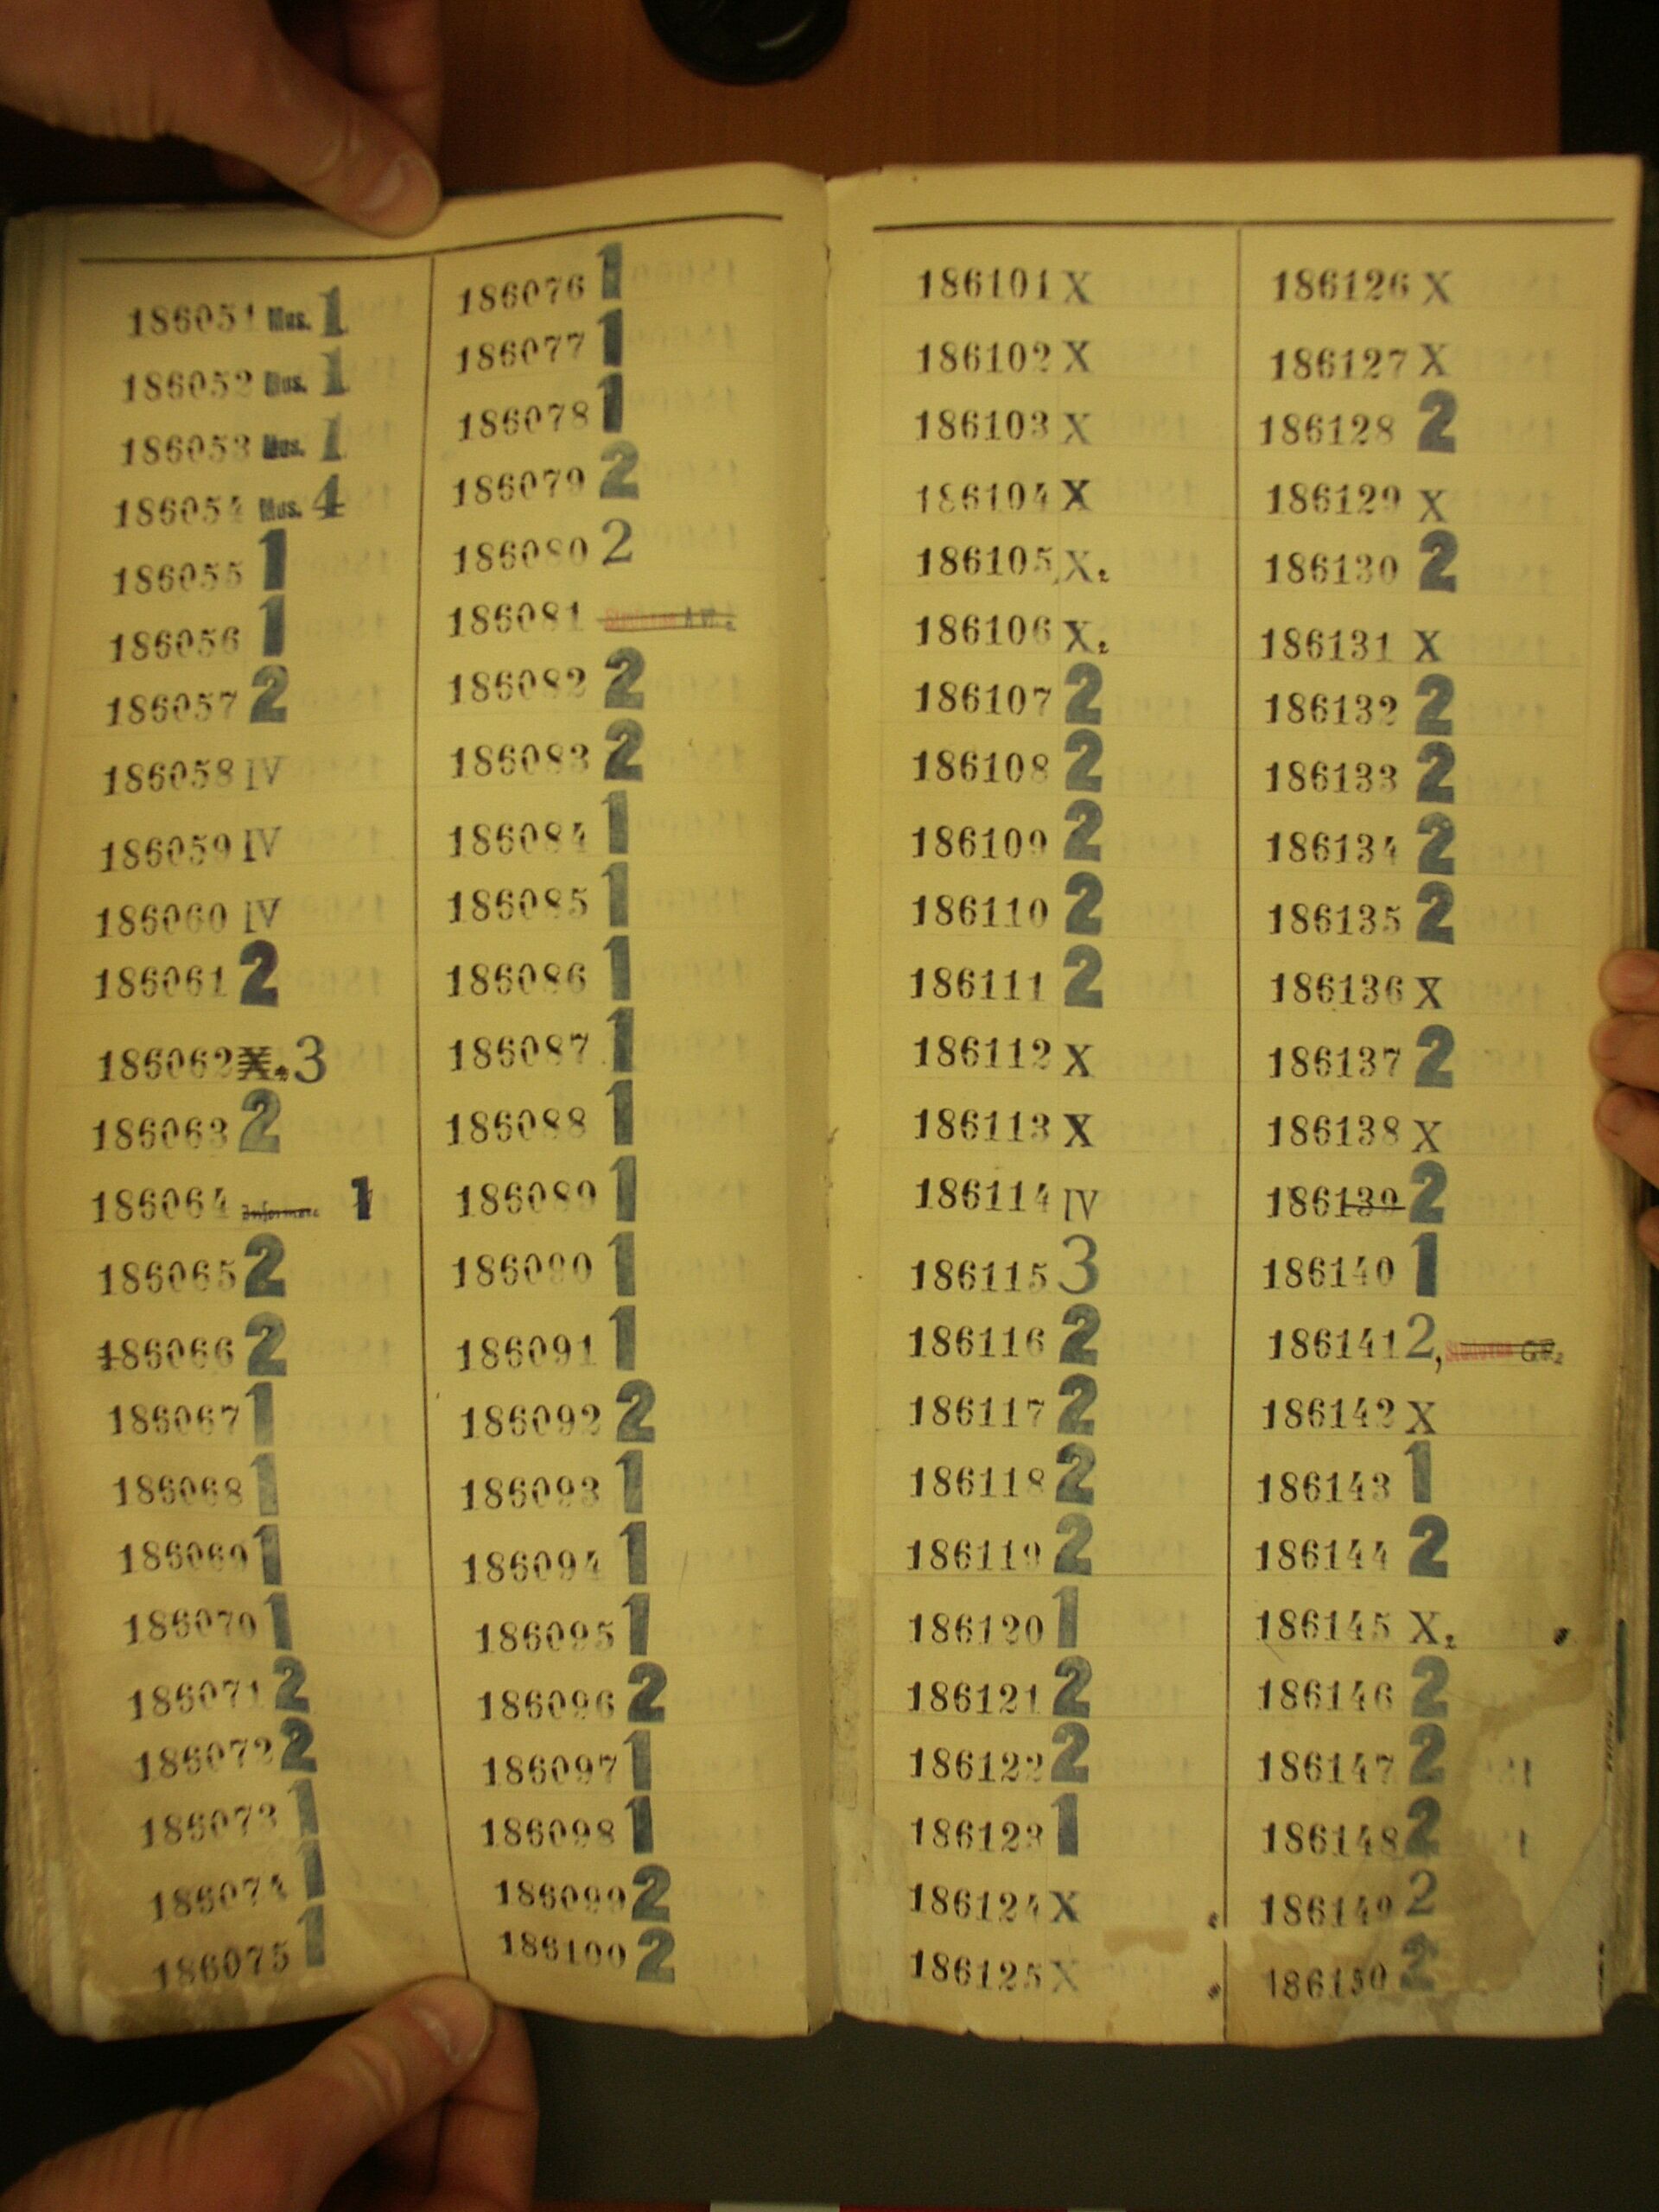 186051 Mus. 1
186052 Mus. 1
186053 Mus. 1
186054 Mus. 4
186055 1
186056 1
186057 2
186058 IV
186059 IV
186060 IV
186061 2
186062 X. 3
186063 2
186064 1
186065 2
186066 2
186067 1
186068 1
186069 1
186070 1
186071 2
186072 2
186073 1
186074 1
186075 1
186076 1
186077 1
186078 1
186079 2
186080 2
186081
186082 2
186083 2
186084 1
186085 1
186086 1
186087 1
186088 1
186089 1
186090 1
186091 1
186092 2
186093 1
186094 1
186095 1
186096 2
186097 1
186098 1
186099 2
186100 2
186101 X
186102 X
186103 X
186104 X
186105 X.
186106 X.
186107 2
186108 2
186109 2
186110 2
186111 2
186112 X
186113 X
186114 IV
186115 3
186116 2
186117 2
186118 2
186119 2
186120 1
186121 2
186122 2
186123 1
186124 X
186125 X
186126 X
186127 X
186128 2
186129 X
186130 2
186131 X
186132 2
186133 2
186134 2
186135 2
186136 X
186137 2
186138 X
186139 2
186140 1
186141 2,
186142 X
186143 1
186144 2
186145 X.
186146 2
186147 2
186148 2
186149 2
186150 2